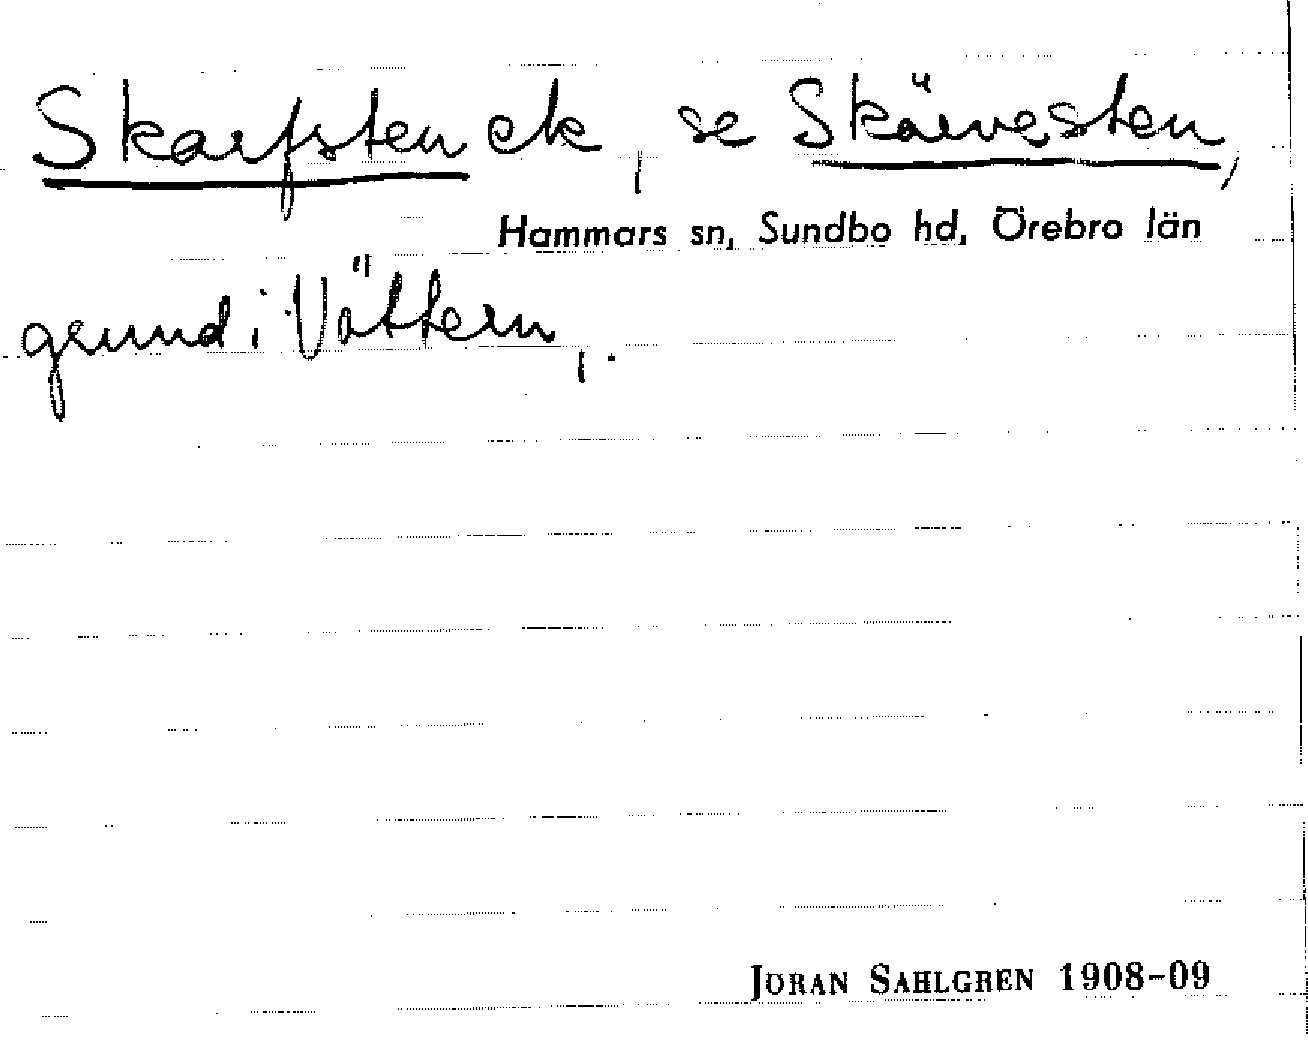 Skarfsten ek, se Skärvesten,
Hammars sn, Sundbo hd, Örebro län
grund i Vättern,.
JORAN SAHLGREN 1908-09